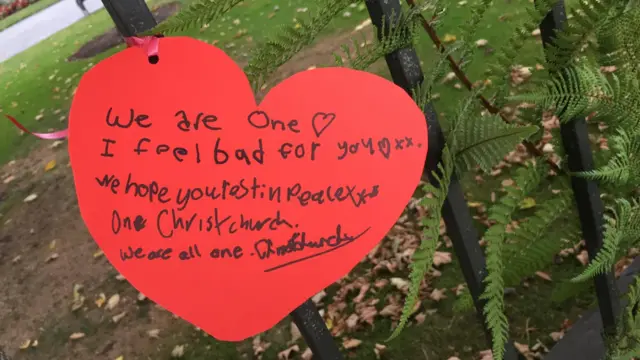 We are One ♡
I feel bad for you ♡xx.
We hope you rest in Peace xxx
One Christchurch.
We are all one. Christchurch